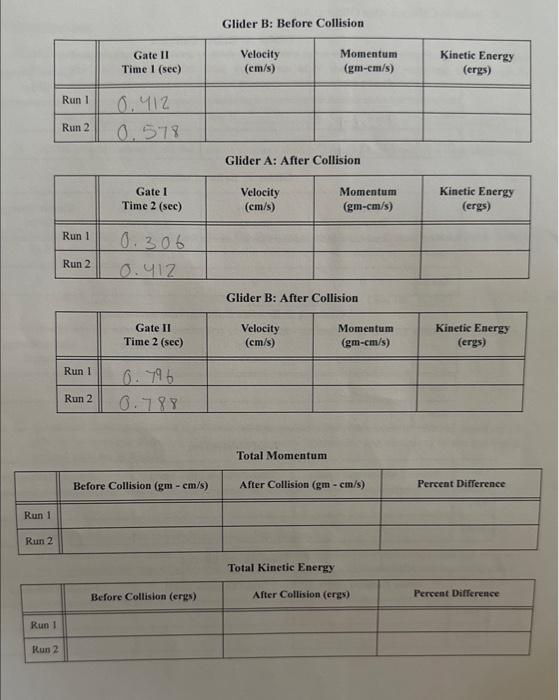 Glider B: Before Collision
Gate II Time 1 (sec) Velocity (cm/s) Momentum (gm-cm/s) Kinetic Energy (ergs)
Run 1 0.412
Run 2 0.578
Glider A: After Collision
Gate I Time 2 (sec) Velocity (cm/s) Momentum (gm-cm/s) Kinetic Energy (ergs)
Run 1 0.306
Run 2 0.412
Glider B: After Collision
Gate II Time 2 (sec) Velocity (cm/s) Momentum (gm-cm/s) Kinetic Energy (ergs)
Run 1 0.796
Run 2 0.788
Total Momentum
Before Collision (gm - cm/s) After Collision (gm - cm/s) Percent Difference
Run 1
Run 2
Total Kinetic Energy
Before Collision (ergs) After Collision (ergs) Percent Difference
Run 1
Run 2